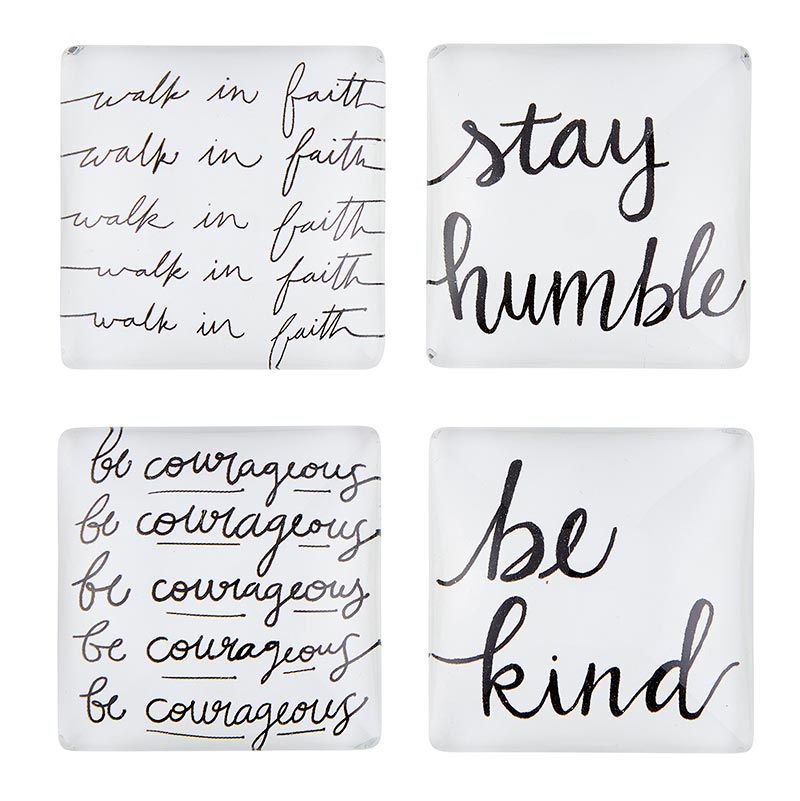 walk in faith
walk in faith
walk in faith
walk in faith
walk in faith
stay
humble
be courageous
be courageous
be courageous
be courageous
be courageous
be
kind